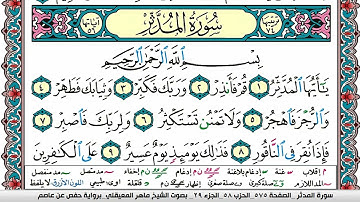 سورة المدثر
بِسْمِ ٱللَّهِ ٱلرَّحْمَٰنِ ٱلرَّحِيمِ
يَٰٓأَيُّهَا ٱلْمُدَّثِّرُ ١ قُمْ فَأَنذِرْ ٢ وَرَبَّكَ فَكَبِّرْ ٣ وَثِيَابَكَ فَطَهِّرْ ٤
وَٱلرُّجْزَ فَٱهْجُرْ ٥ وَلَا تَمْنُن تَسْتَكْثِرُ ٦ وَلِرَبِّكَ فَٱصْبِرْ ٧
فَإِذَا نُقِرَ فِى ٱلنَّاقُورِ ٨ فَذَٰلِكَ يَوْمَئِذٍ يَوْمٌ عَسِيرٌ ٩ عَلَى ٱلْكَٰفِرِينَ
سورة المدثر الصفحة ٥٧٥ الجزء ٢٩ بصوت الشيخ ماهر المعيقلي برواية حفص عن عاصم